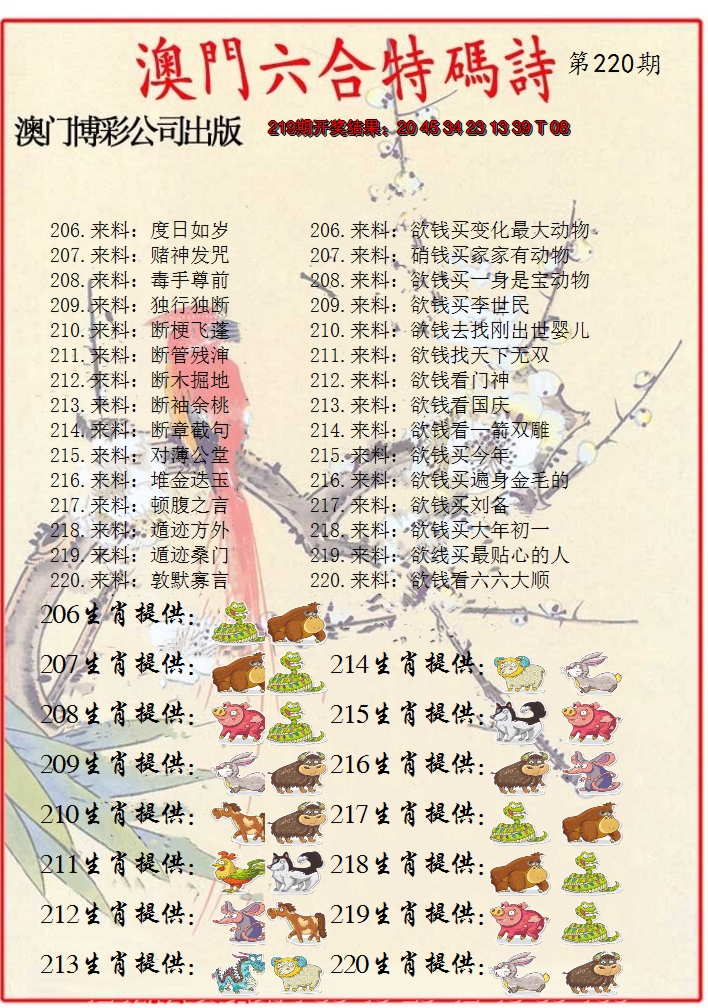 澳門六合特碼詩 第220期
澳门博彩公司出版 219期开奖结果：20 45 34 23 13 39 T 08
206.来料：度日如岁 206.来料：欲钱买变化最大动物
207.来料：赌神发咒 207.来料：硝钱买家家有动物
208.来料：毒手尊前 208.来料：欲钱买一身是宝动物
209.来料：独行独断 209.来料：欲钱买李世民
210.来料：断梗飞蓬 210.来料：欲钱去找刚出世婴儿
211.来料：断管残渖 211.来料：欲钱找天下无双
212.来料：断木掘地 212.来料：欲钱看门神
213.来料：断袖余桃 213.来料：欲钱看国庆
214.来料：断章截句 214.来料：欲钱看一箭双雕
215.来料：对薄公堂 215.来料：欲钱买今年
216.来料：堆金迭玉 216.来料：欲钱买遍身金毛的
217.来料：顿腹之言 217.来料：欲钱买刘备
218.来料：遁迹方外 218.来料：欲钱买大年初一
219.来料：遁迹桑门 219.来料：欲线买最贴心的人
220.来料：敦默寡言 220.来料：欲钱看六六大顺
206生肖提供：
207生肖提供： 214生肖提供：
208生肖提供： 215生肖提供：
209生肖提供： 216生肖提供：
210生肖提供： 217生肖提供：
211生肖提供： 218生肖提供：
212生肖提供： 219生肖提供：
213生肖提供： 220生肖提供：